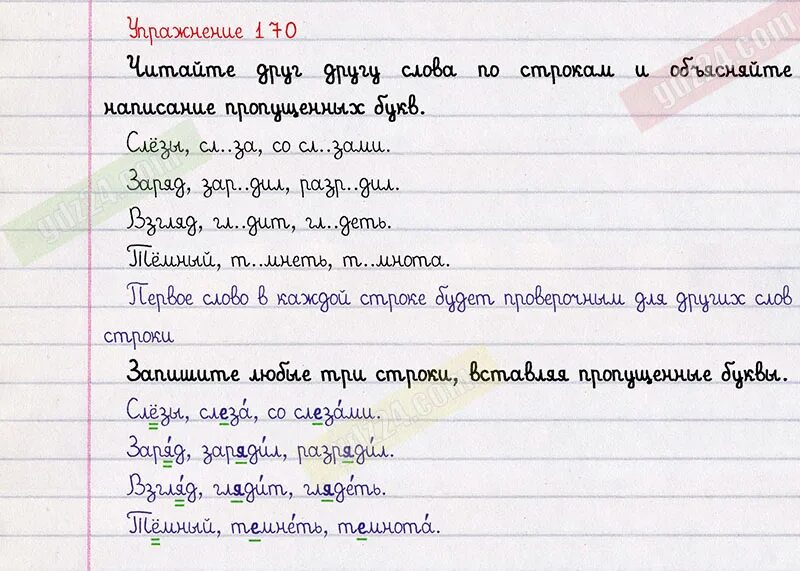 Упражнение 170
Читайте друг другу слова по строкам и объясняйте
написание пропущенных букв.
Слёзы, сл..за, со сл..зами.
Заряд, зар..дил, разр..дил.
Взгляд, гл..дит, гл..деть.
Тёмный, т..мнеть, т..мнота.
Первое слово в каждой строке будет проверочным для других слов
строки
Запишите любые три строки, вставляя пропущенные буквы.
Слёзы, слеза́, со слеза́ми.
Заря́д, заряди́л, разряди́л.
Взгля́д, гляди́т, гляде́ть.
Тёмный, темне́ть, темнота́.
ydz24.com
ydz24.com
ydz24.com